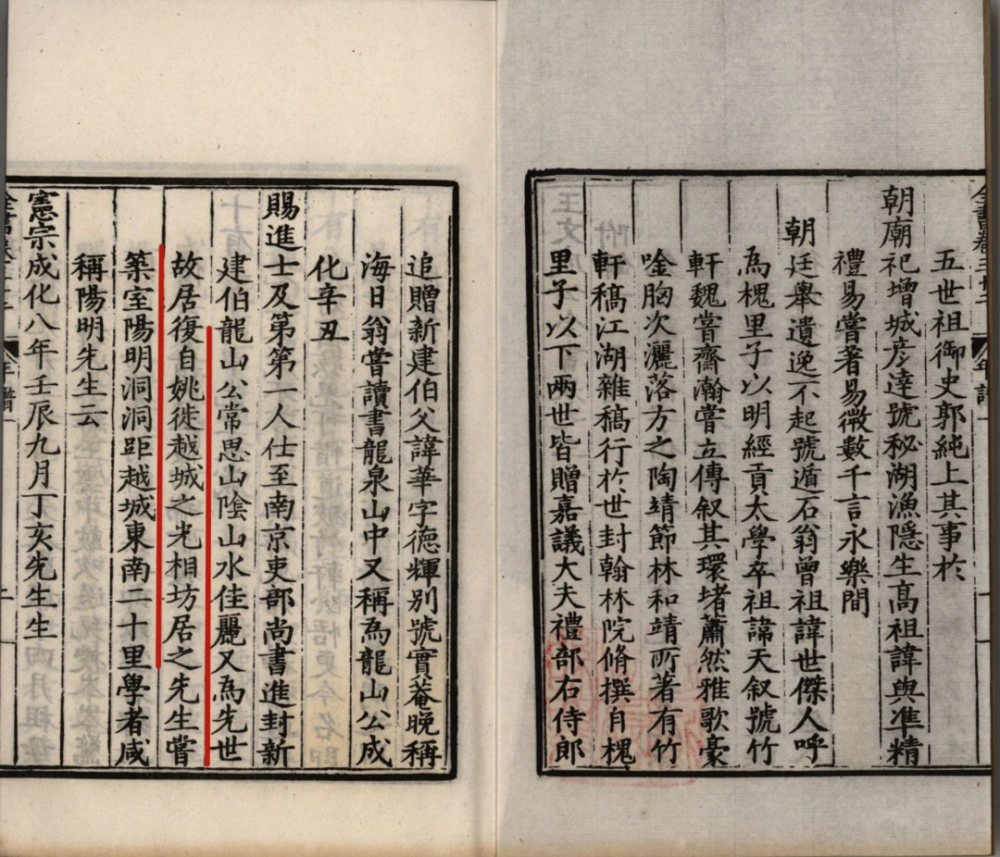 五世祖御史郭純上其事於
朝廟祀增城彥達號秘湖漁隱生高祖諱與準精
禮易嘗著易微數千言永樂間
朝廷舉遺逸不起號遁石翁曾祖諱世傑人呼
為槐里子以明經貢太學卒祖諱天叙號竹
軒魏嘗齋瀚嘗立傳叙其環堵蕭然雅歌豪
唫胸次灑落方之陶靖節林和靖所著有竹
軒稿江湖雜稿行於世封翰林院脩撰自槐
里子以下兩世皆贈嘉議大夫禮部右侍郎
追贈新建伯父諱華字德輝別號實菴晚稱
海日翁嘗讀書龍泉山中又稱為龍山公成
化辛丑
賜進士及第第一人仕至南京吏部尚書進封新
建伯龍山公常思山陰山水佳麗又為先世
故居復自姚徙越城之光相坊居之先生嘗
築室陽明洞洞距越城東南二十里學者咸
稱陽明先生云
憲宗成化八年壬辰九月丁亥先生生